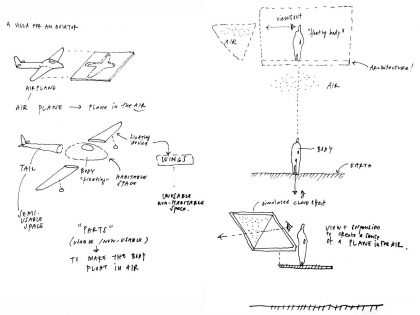 A VILLA FOR AN AVIATOR
AIRPLANE
AIR PLANE → PLANE in the AIR
floating device
WINGS
TAIL
BODY
"floating"
HABITABLE SPACE
SEMI-USABLE SPACE
UNUSABLE
NON-HABITABLE
SPACE.
"PARTS"
(USABLE / NON-USABLE)
TO MAKE THE BODY
FLOAT IN AIR
viewsout
AIR
"floating body"
ARCHITECTURE!
AIR
BODY
EARTH
g
simulated cloud effect
VIEW + SUSPENSION
to create a sense
of a PLANE in the AIR.